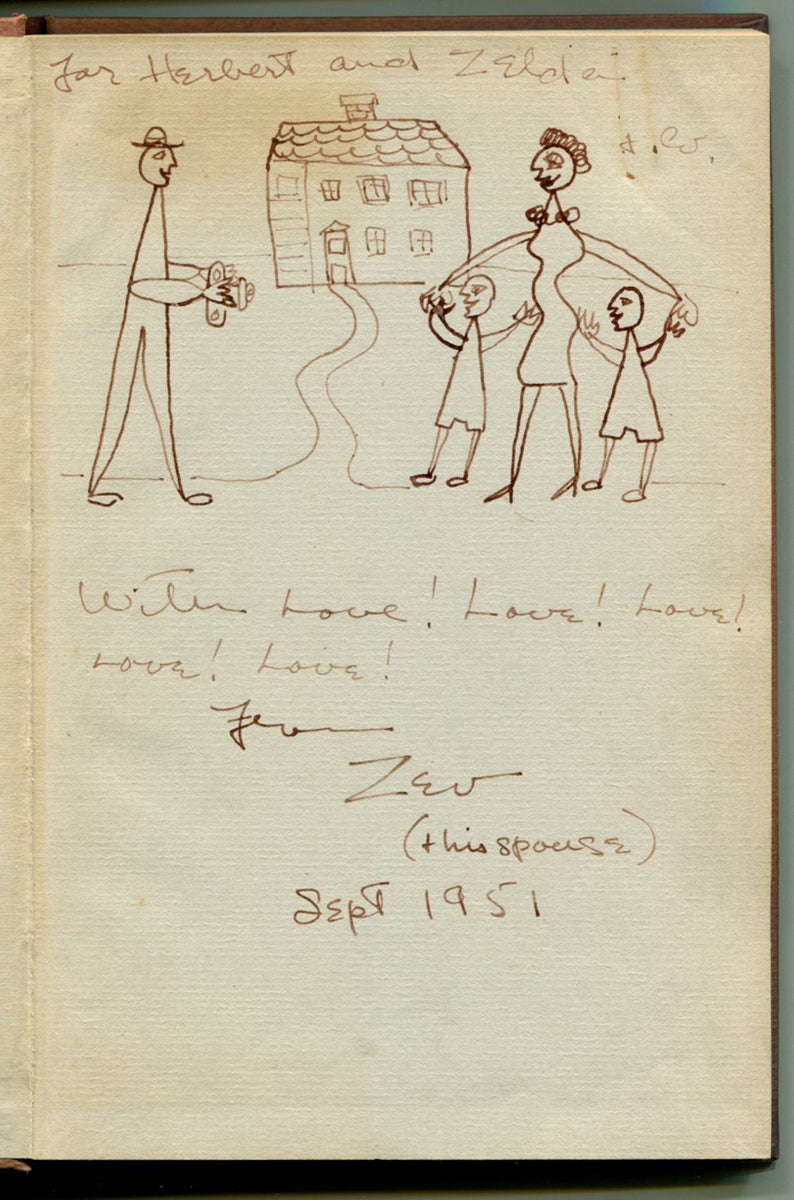 For Herbert and Zelda
& Co.
With Love! Love! Love!
Love! Love!
From
Zev
(& his spouse)
Sept 1951